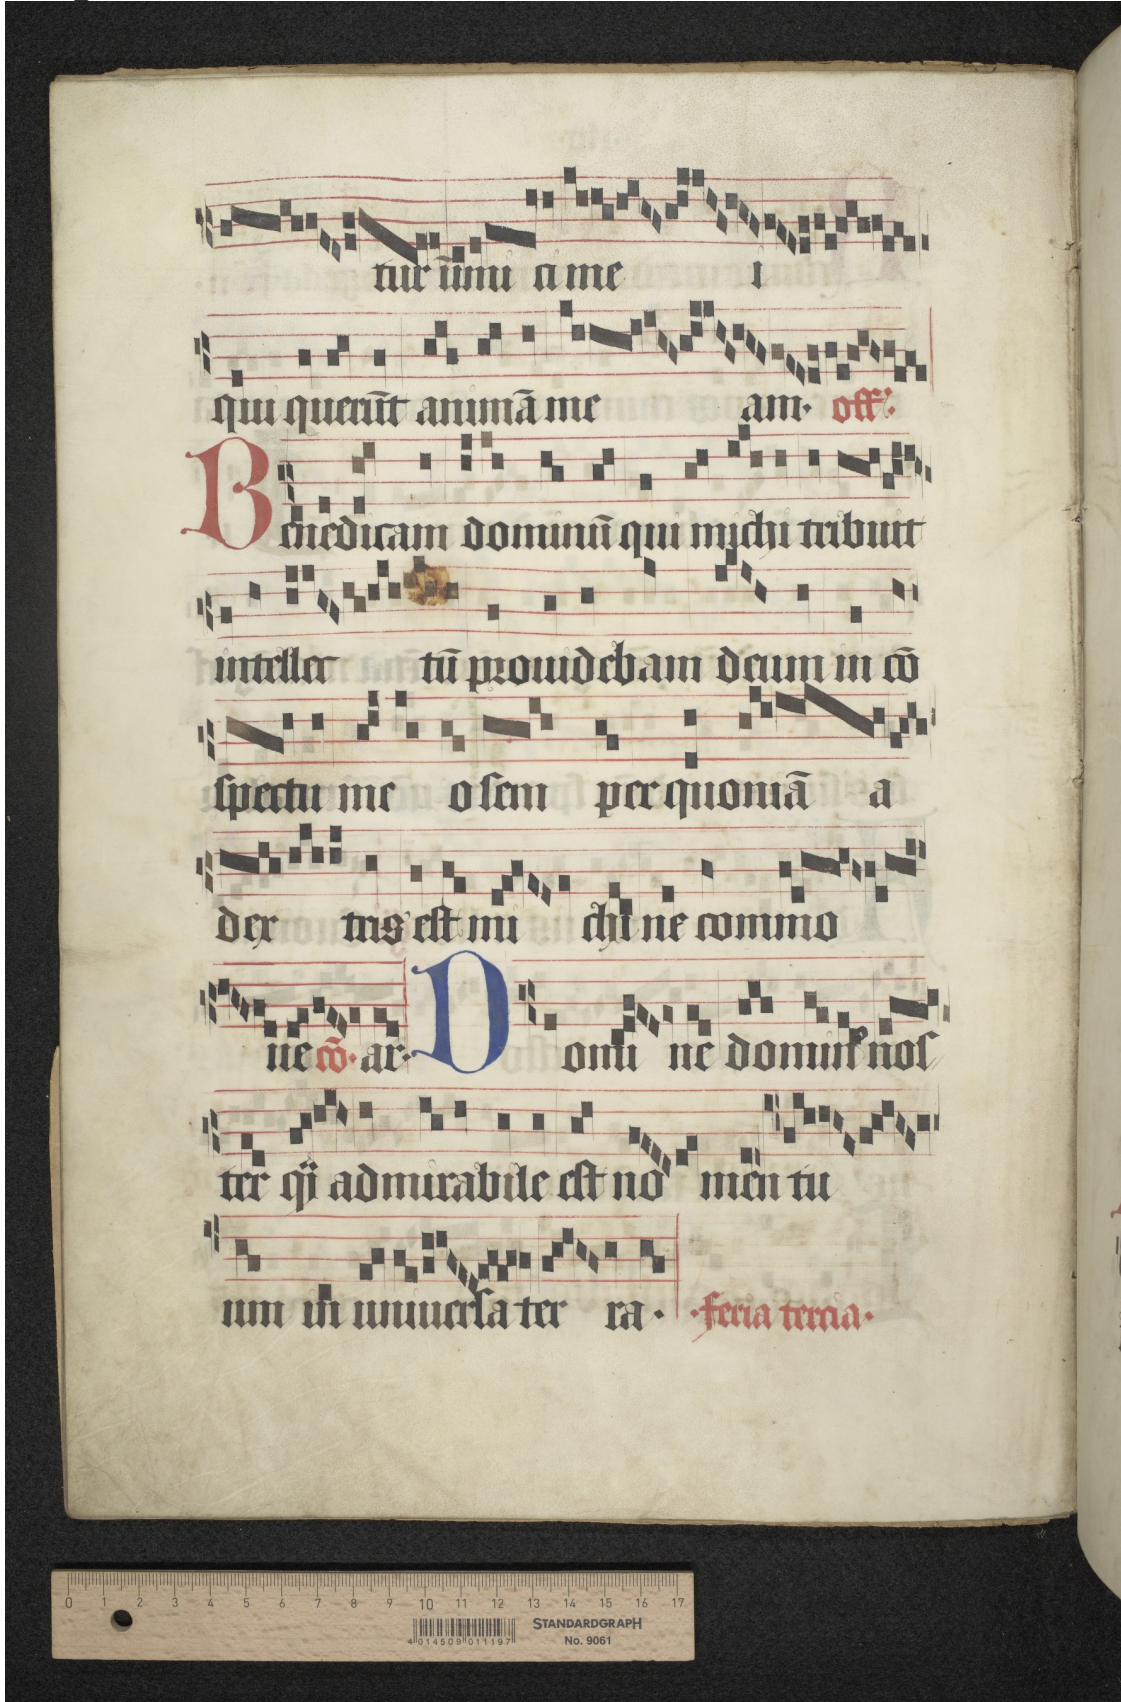 tur inimi ci me i
qui querūt animā me am· off:
Benedicam dominū qui michi tribuit
intellec tū prouidebam deum in cō
spectu me o sem per quoniā a
dex tris est mi chi ne commo
ue cō· ar· Domi ne domin⁹ nos
ter q̄ admirabile est no men tu
um in uniuersa ter ra· ·feria tercia·
0 1 2 3 4 5 6 7 8 9 10 11 12 13 14 15 16 17
4 014509 011197 STANDARDGRAPH
No. 9061